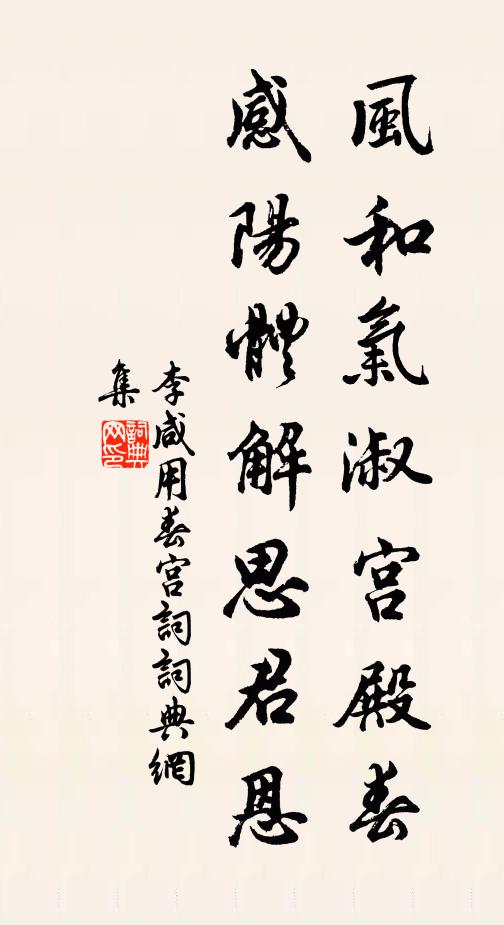 風和氣淑宮殿春
感陽體解思君恩
李咸用春宮詞詞典網
集
詞典
网印